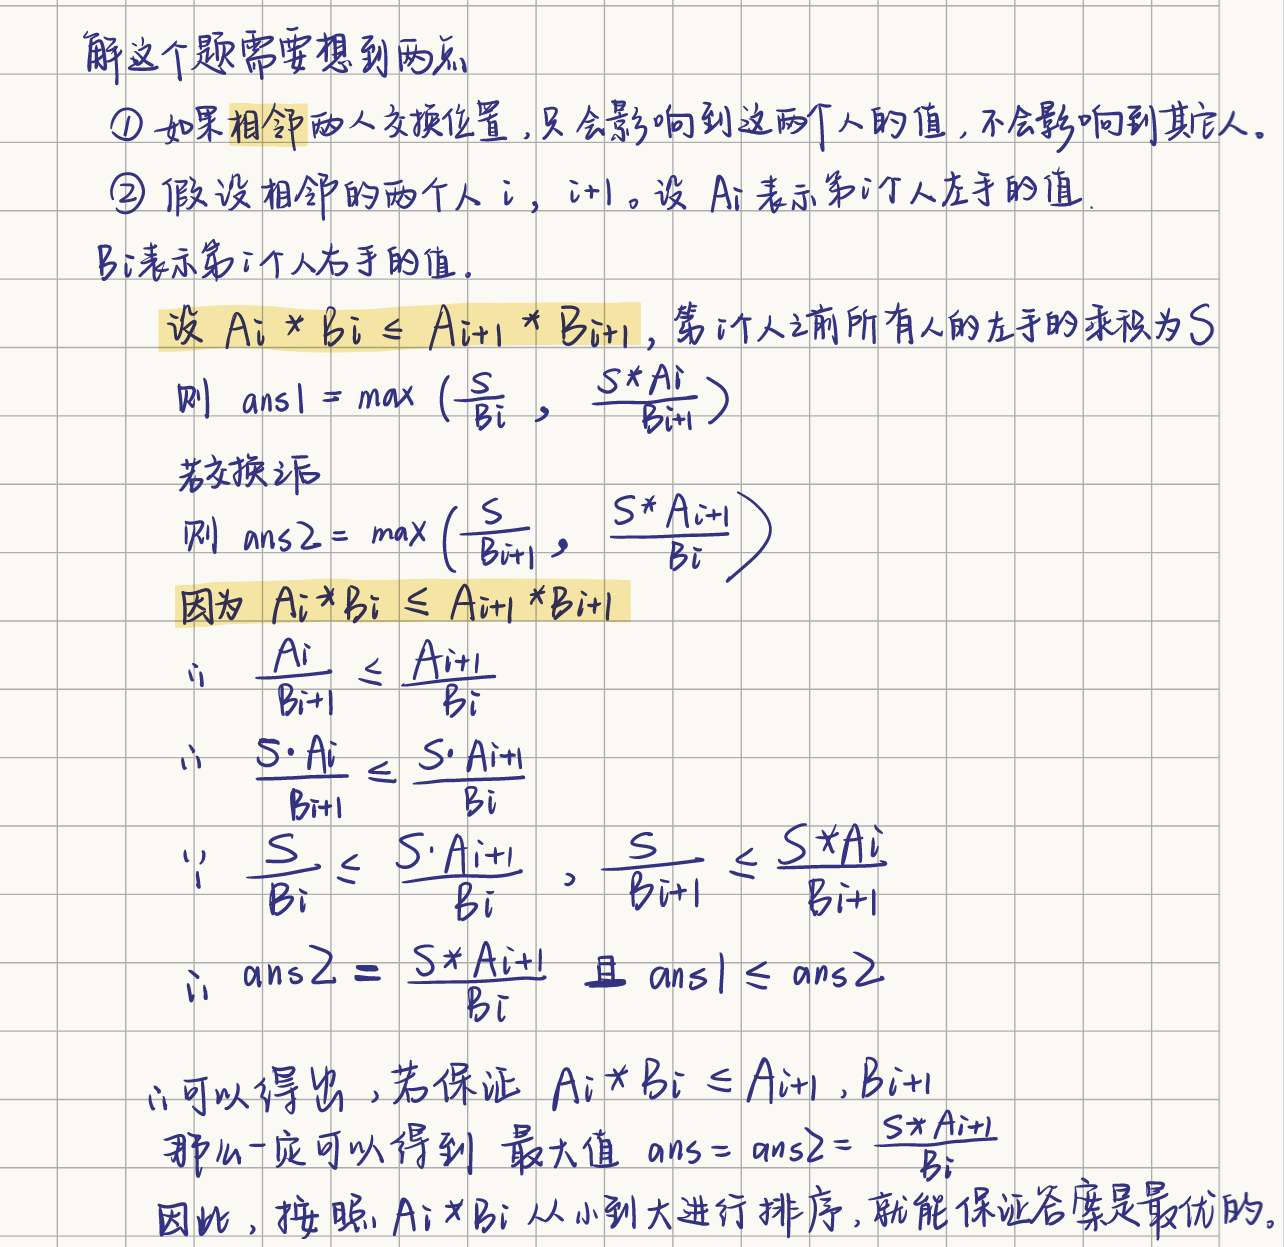 解这个题需要想到两点
① 如果相邻两人交换位置,只会影响到这两个人的值,不会影响到其它人。
② 假设相邻的两个人 i, i+1。设 Ai 表示第i个人左手的值.
Bi表示第i个人右手的值.
设 Ai * Bi ≤ Ai+1 * Bi+1, 第i个人之前所有人的左手的乘积为S
则 ans1 = max (S/Bi, S*Ai/Bi+1)
若交换之后
则 ans2 = max (S/Bi+1, S*Ai+1/Bi)
因为 Ai*Bi ≤ Ai+1*Bi+1
∴ Ai/Bi+1 ≤ Ai+1/Bi
∴ S·Ai/Bi+1 ≤ S·Ai+1/Bi
∵ S/Bi ≤ S·Ai+1/Bi , S/Bi+1 ≤ S*Ai/Bi+1
∴ ans2 = S*Ai+1/Bi 且 ans1 ≤ ans2
∴ 可以得出,若保证 Ai*Bi ≤ Ai+1 . Bi+1
那么一定可以得到 最大值 ans = ans2 = S*Ai+1/Bi
因此,按照 Ai*Bi 从小到大进行排序,就能保证答案是最优的。